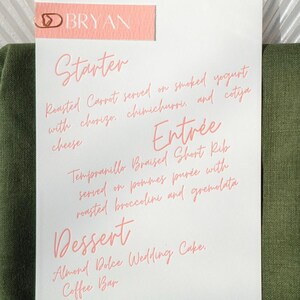 BRYAN
Starter
Roasted Carrot served on smoked yogurt
with chorizo, chimichurri, and cotija
cheese
Entrée
Tempranillo Braised Short Rib
served on pommes purée with
roasted broccolini and gremolata
Dessert
Almond Dolce Wedding Cake,
Coffee Bar